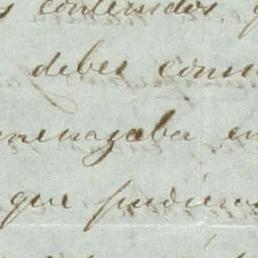 contenidos
debes
amenazaba en
que pudiera